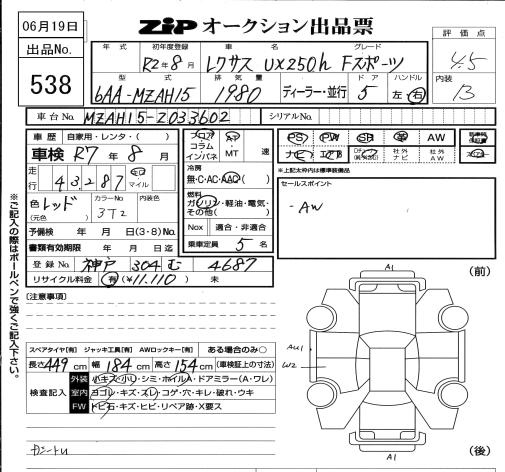 06月19日
ZIP オークション出品票
出品No.
538
年式 初年度登録 車名 グレード
R2年8月 レクサス UX250h Fスポーツ
型式 排気量 ドア ハンドル
6AA-MZAH15 1980 ディーラー・並行 5 左・右
評価点
4.5
内装
B
車台No. MZAH15-2033602 シリアルNo.
車歴 自家用・レンタ・( )
車検 R7年8月
走行 43,287 km・マイル
色(元色) レッド カラーNo. 3T2 内装色
予備検 年 月 日(3・8)No.
書類有効期限 年 月 日迄
登録No. 神戸 304 む 4687
リサイクル料金 有(¥11,110) 未
フロア コラム インパネ AT・MT 速
冷房
無・C・AC・AAC
燃料
ガソリン・軽油・電気・その他( )
Nox 適合・非適合
乗車定員 5 名
PS PW SR 革 AW
ナビ エアB 社外ナビ 社外AW
※上記太枠内は標準装備品
セールスポイント
・AW
※ご記入の際はボールペンで強くご記入下さい。
[注意事項]
スペアタイヤ[有] ジャッキ工具[有] AWロックキー[有] ある場合のみ○
長さ449cm 幅184cm 高さ154cm (車検証上の寸法)
検査記入
外装 小キズ・小リ・シミ・ホイルA・ドアミラー(A・ワレ)
室内 ヨゴレ・キズ・スレ・コゲ・穴・キレ・破れ・ウキ
FW トビ石・キズ・ヒビ・リペア跡・X要ス
(前)
A1
AU1
W2
A1
(後)